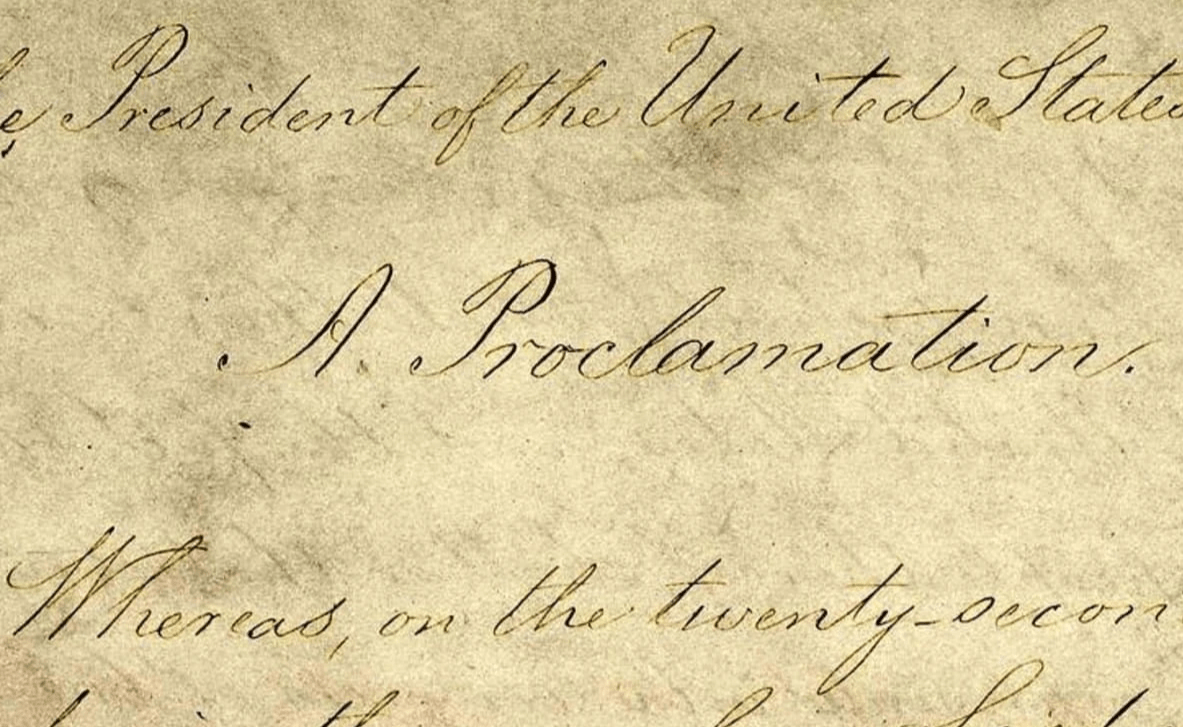 President of the United States
A Proclamation.
Whereas, on the twenty-secon